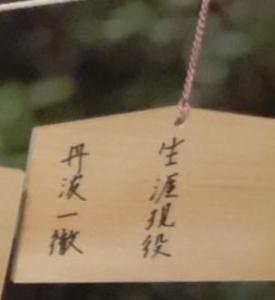 生涯現役
丹波一徹